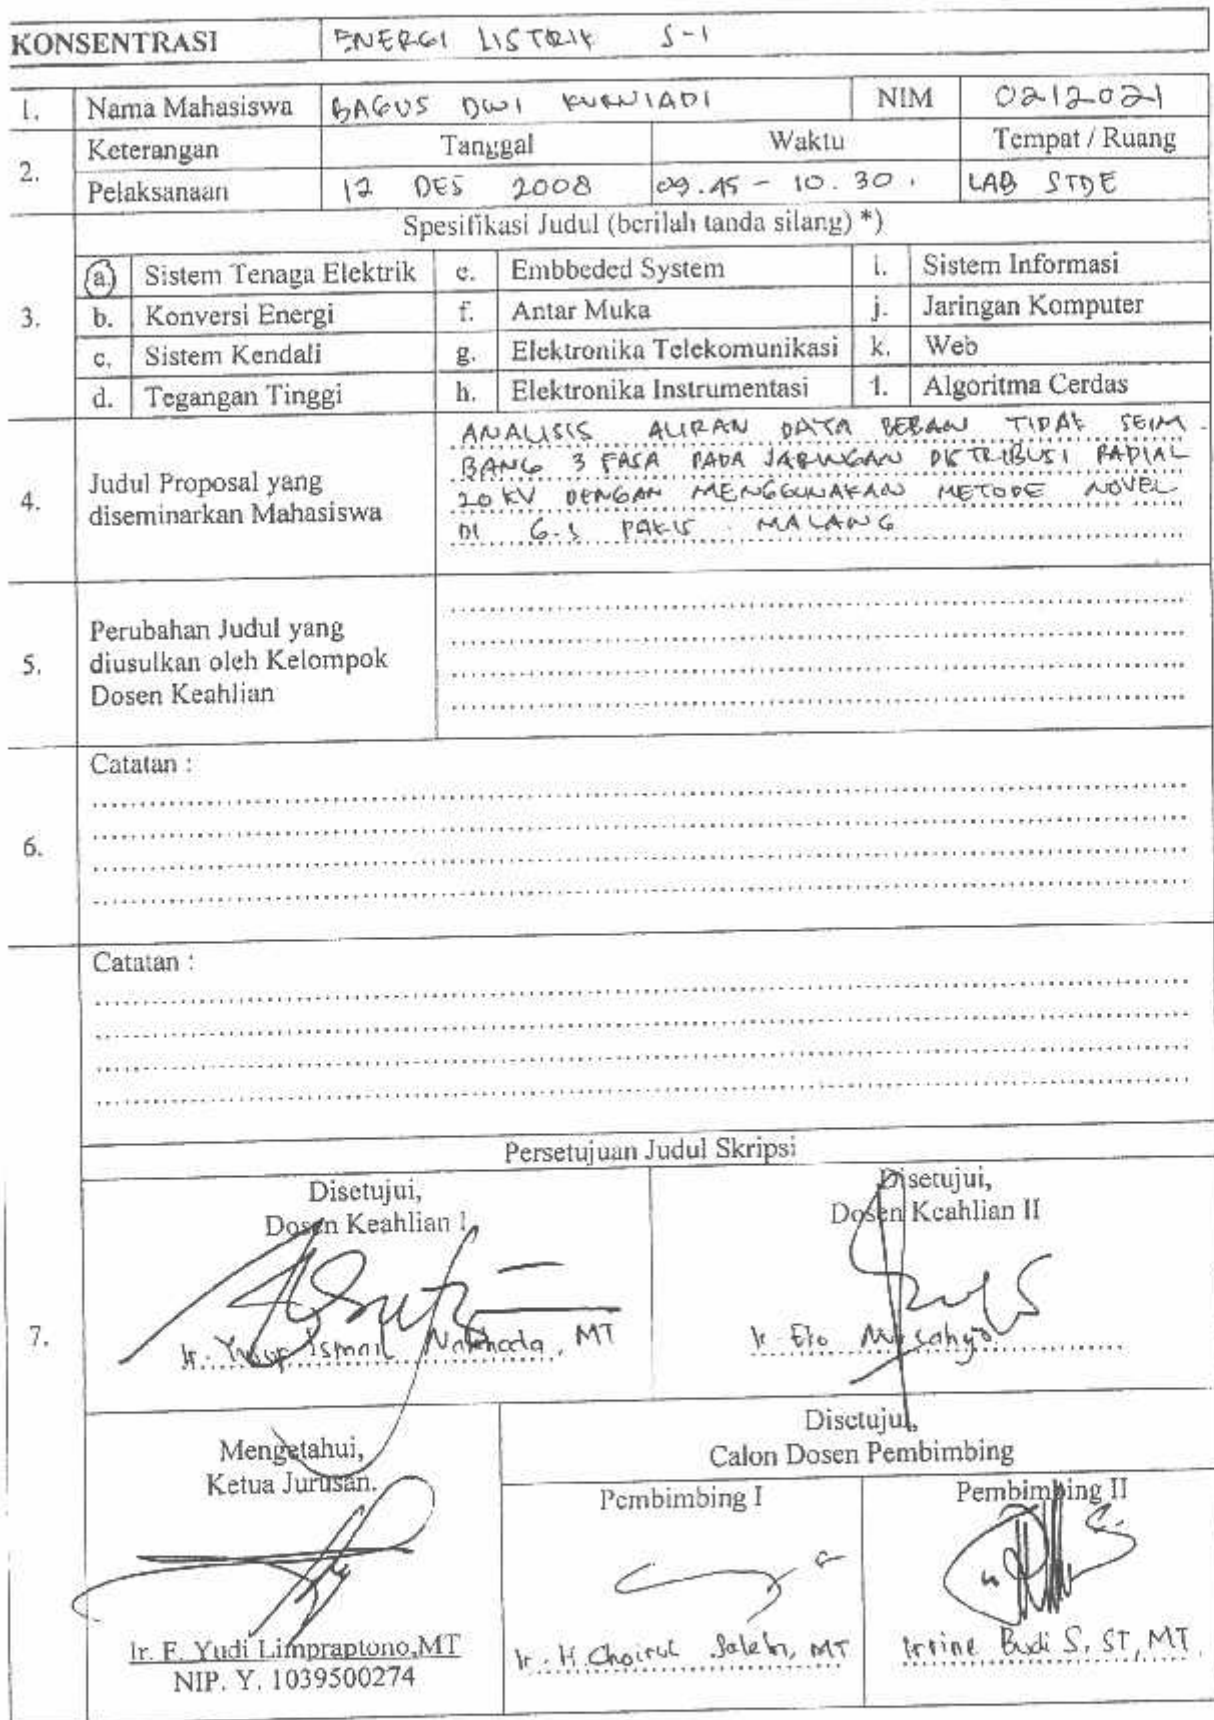 KONSENTRASI ENERGI LISTRIK S-1
1. Nama Mahasiswa BAGUS DWI KURNIADI NIM 0212021
2. Keterangan Tanggal Waktu Tempat / Ruang
Pelaksanaan 12 DES 2008 09.45 - 10.30. LAB STDE
Spesifikasi Judul (berilah tanda silang) *)
3.
a. Sistem Tenaga Elektrik e. Embbeded System i. Sistem Informasi
b. Konversi Energi f. Antar Muka j. Jaringan Komputer
c. Sistem Kendali g. Elektronika Telekomunikasi k. Web
d. Tegangan Tinggi h. Elektronika Instrumentasi l. Algoritma Cerdas
4. Judul Proposal yang
diseminarkan Mahasiswa
ANALISIS ALIRAN DAYA BEBAN TIDAK SEIM
BANG 3 FASA PADA JARINGAN DISTRIBUSI RADIAL
20 KV DENGAN MENGGUNAKAN METODE NOVEL
DI G.I PAKIS MALANG
5. Perubahan Judul yang
diusulkan oleh Kelompok
Dosen Keahlian
6. Catatan :
Catatan :
7. Persetujuan Judul Skripsi
Disetujui,
Dosen Keahlian I
Ir. Yusuf Ismail Nakhoda, MT
Disetujui,
Dosen Keahlian II
Ir. Eko
Mengetahui,
Ketua Jurusan.
Ir. F. Yudi Limpraptono,MT
NIP. Y. 1039500274
Disetujui,
Calon Dosen Pembimbing
Pembimbing I
Ir. H. Choirul Saleh, MT
Pembimbing II
Irrine Budi S, ST, MT